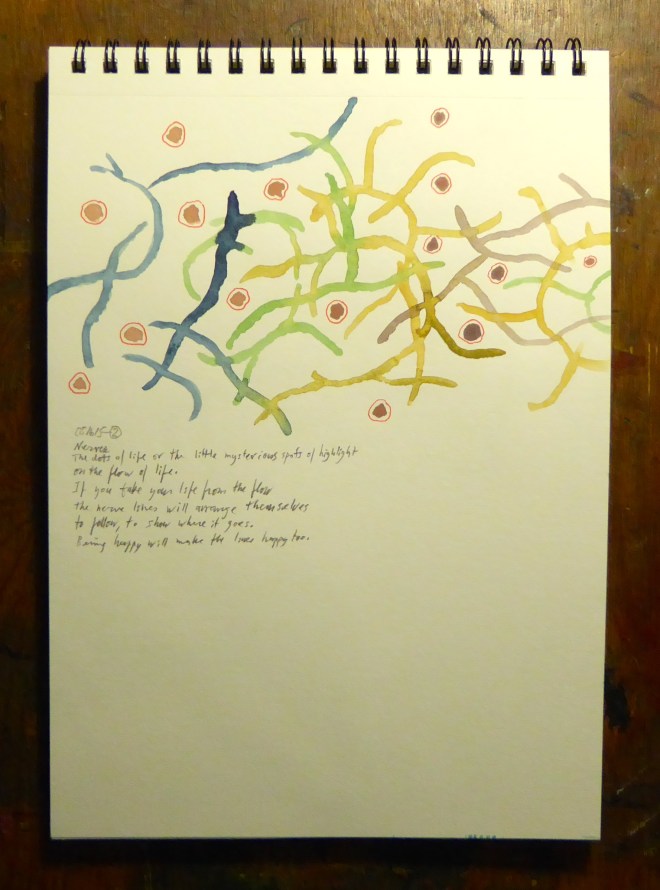 Nerves
The dots of life or the little mysterious spots of highlight
on the flow of life.
If you take your life from the flow
the nerve lines will arrange themselves
to follow, to show where it goes.
Being happy will make the lines happy too.